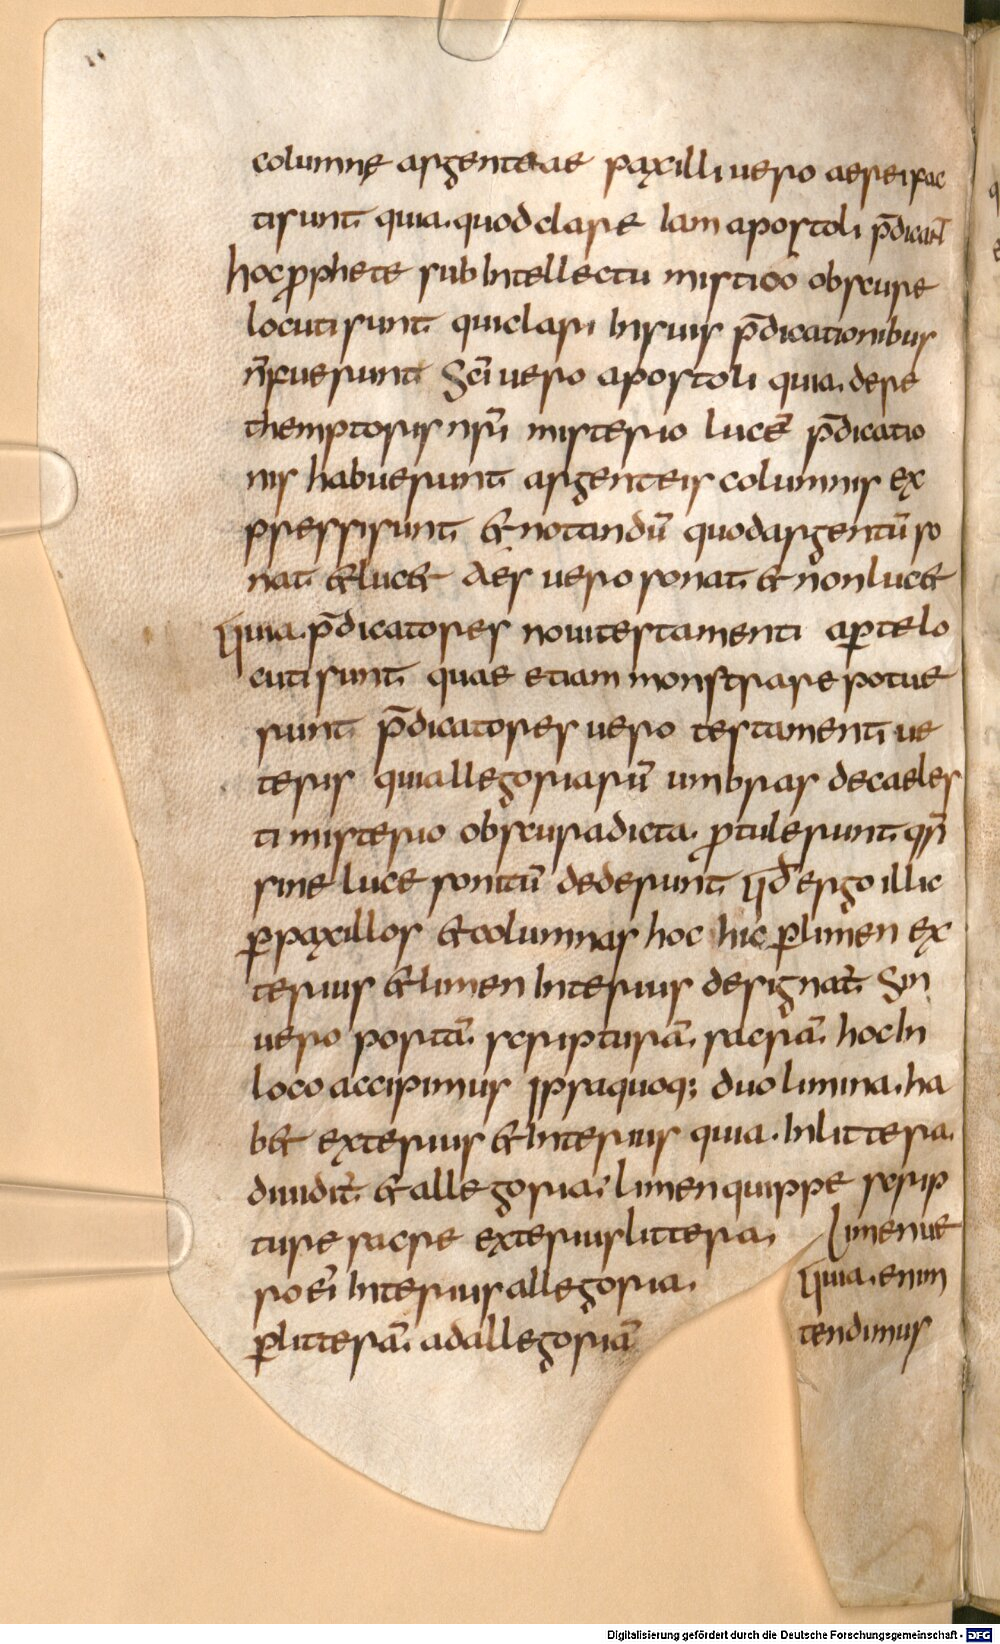 columnę argenteae paxilli uero aerei fac
ti sunt quia quod clare Iam apostoli p̄dicaN̄t
hoc ꝓphete sub Intellectu mistico obscure
locuti sunt qui clari In suis p̄dicationibus
n̄ fuerunt Sc̄i uero apostoli quia de re
themptoris nr̄i misterio lucē p̄dicatio
nis habuerunt argenteis columnis ex
pressi sunt & notandū quod argentū so
nat & luc& Aes uero sonat & non luc&
Quia p̄dicatores noui testamenti aꝑte lo
cuti sunt quae etiam monstrare potue
runt p̄dicatores uero testamenti ue
teris qui allegoriarū umbras de caeles
ti misterio obscura dicta ꝓtulerunt qsi
sine luce sonitū dederunt qđ ergo illic
ꝑ paxillos & columnas hoc hic ꝑ limen ex
terius & limen Interius designat̄ Sin
uero portā scripturā sacrā hoc In
loco accipimus Ipsa quoq; duo limina ha
b& exterius & Interius quia In littera
diuidit̄ & allegoria; limen quippe scrip
ture sacre exterius littera; Limen ue
ro ei̅ Interius allegoria. Quia enim
ꝑ litterā ad allegoriā tendimus
Digitalisierung gefördert durch die Deutsche Forschungsgemeinschaft - DFG